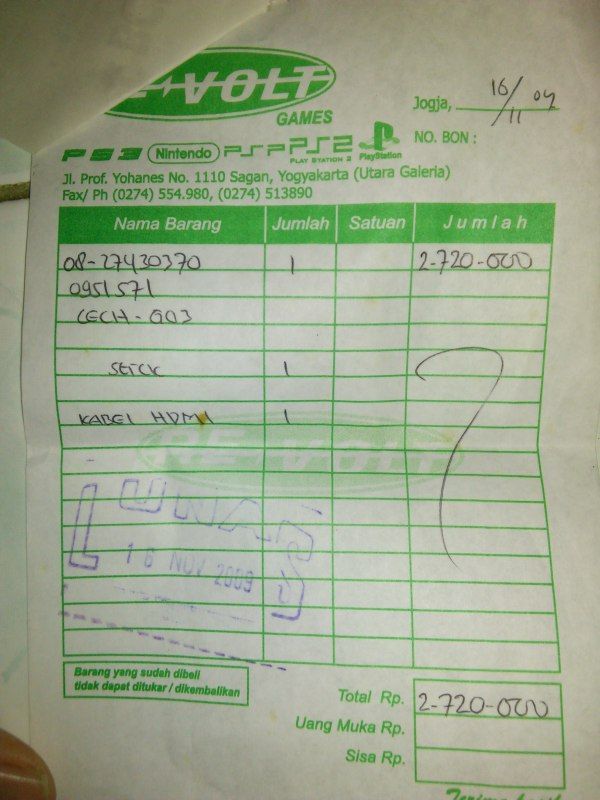 RE-VOLT
GAMES
Jogja, 16/11 09
PS3 Nintendo PSP PS2 PlayStation
PLAY STATION 2
NO. BON :
Jl. Prof. Yohanes No. 1110 Sagan, Yogyakarta (Utara Galeria)
Fax/ Ph (0274) 554.980, (0274) 513890
Nama Barang Jumlah Satuan Jumlah
08-27430370 1 2-720-000
0951571
CECH-
1
KABEL HDMI 1
RE-VOLT
LUNAS
16 NOV 2009
Barang yang sudah dibeli
tidak dapat ditukar / dikembalikan
Total Rp. 2-720-000
Uang Muka Rp.
Sisa Rp.